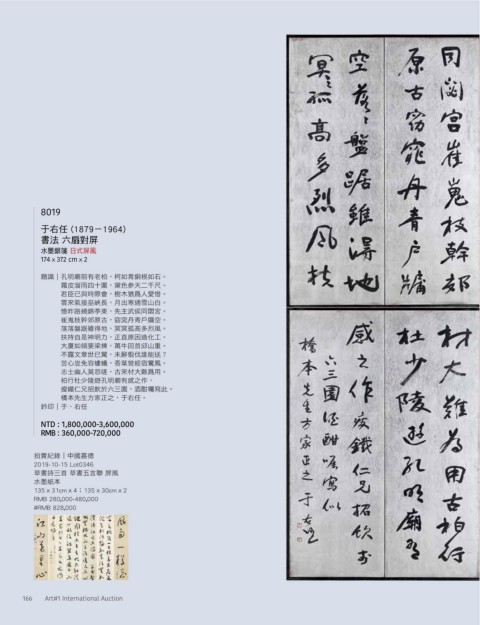 8019
于右任（1879－1964）
書法 六扇對屏
水墨銀箋 日式屏風
174 x 372 cm x 2
題識｜孔明廟前有老柏，柯如青銅根如石。
霜皮溜雨四十圍，黛色參天二千尺。
君臣已與時際會，樹木猶為人愛惜。
雲來氣接巫峽長，月出寒通雪山白。
憶昨路繞錦亭東，先主武侯同閟宮。
崔嵬枝幹郊原古，窈窕丹青戶牖空。
落落盤踞雖得地，冥冥孤高多烈風。
扶持自是神明力，正直原因造化工。
大廈如傾要梁棟，萬牛回首邱山重。
不露文章世已驚，未辭翦伐誰能送？
苦心豈免容螻蟻，香葉曾經宿鸞鳳。
志士幽人莫怨嗟，古來材大難為用。
柏行杜少陵遊孔明廟有感之作，
痠鐵仁兄招飲於六三園，酒酣囑寫此。
橋本先生方家正之，于右任。
鈐印｜于、右任
NTD : 1,800,000-3,600,000
RMB : 360,000-720,000
拍賣紀錄｜中國嘉德
2019-10-15 Lot0346
草書詩三首 草書五言聯 屏風
水墨紙本
135 x 31cm x 4；135 x 30cm x 2
RMB 280,000-480,000
#RMB 828,000
166 Art#1 International Auction
同閟宮崔嵬枝幹郊
原古窈窕丹青戶牖
空落落盤踞雖得地
冥冥孤高多烈風扶
材大難為用古柏行
杜少陵遊孔明廟有
感之作痠鐵仁兄招飲於
六三園酒酣囑寫似
橋本先生方家正之 于右任